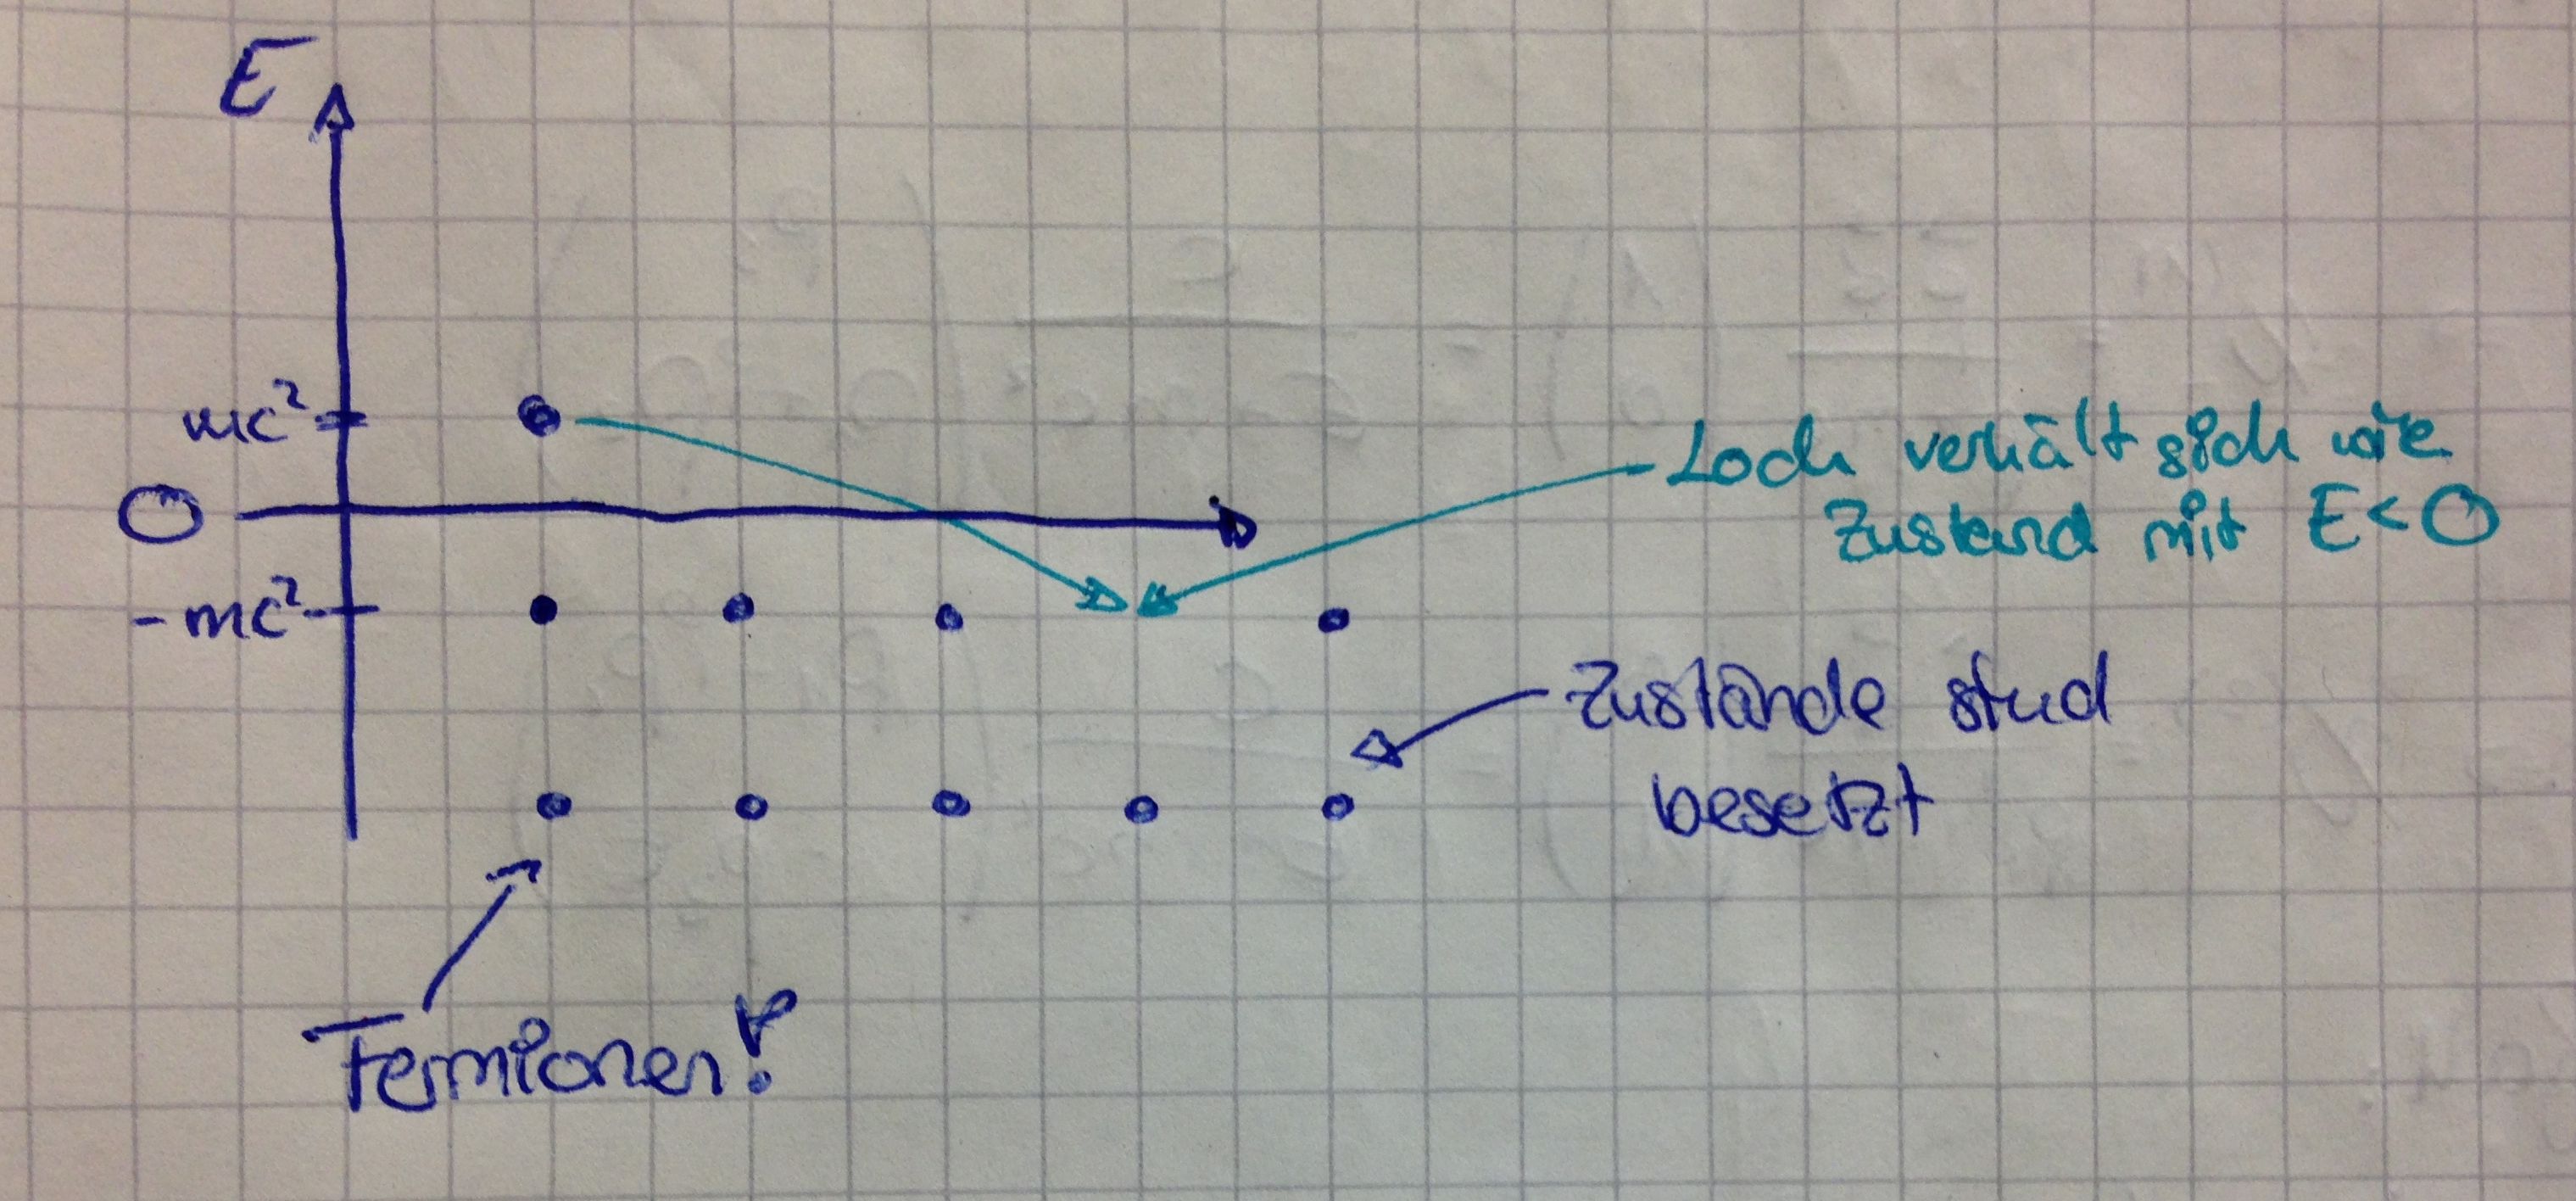 E
mc²
0
-mc²
Loch verhält sich wie
Zustand mit E<0
Zustände sind
besetzt
Fermionen!